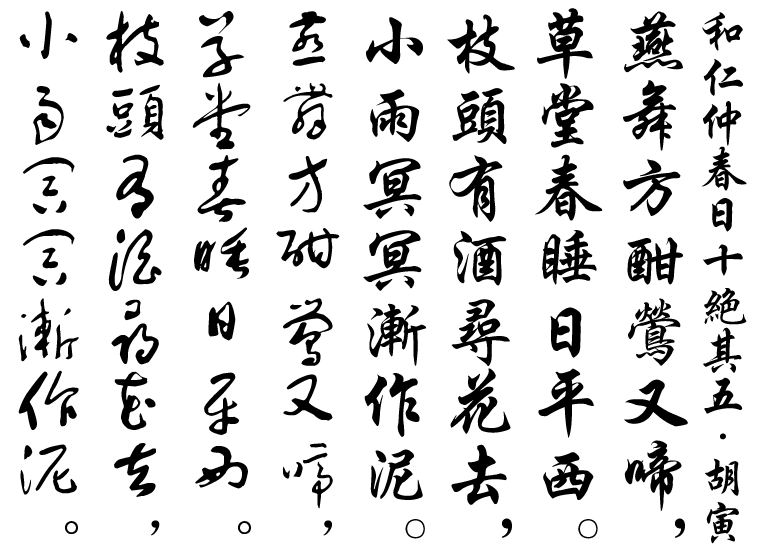 和仁仲春日十絕其五·胡寅
燕舞方酣鶯又啼，
草堂春睡日平西。
枝頭有酒尋花去，
小雨冥冥漸作泥。
燕舞方酣鶯又啼，
草堂春睡日平西。
枝頭有酒尋花去，
小雨冥冥漸作泥。